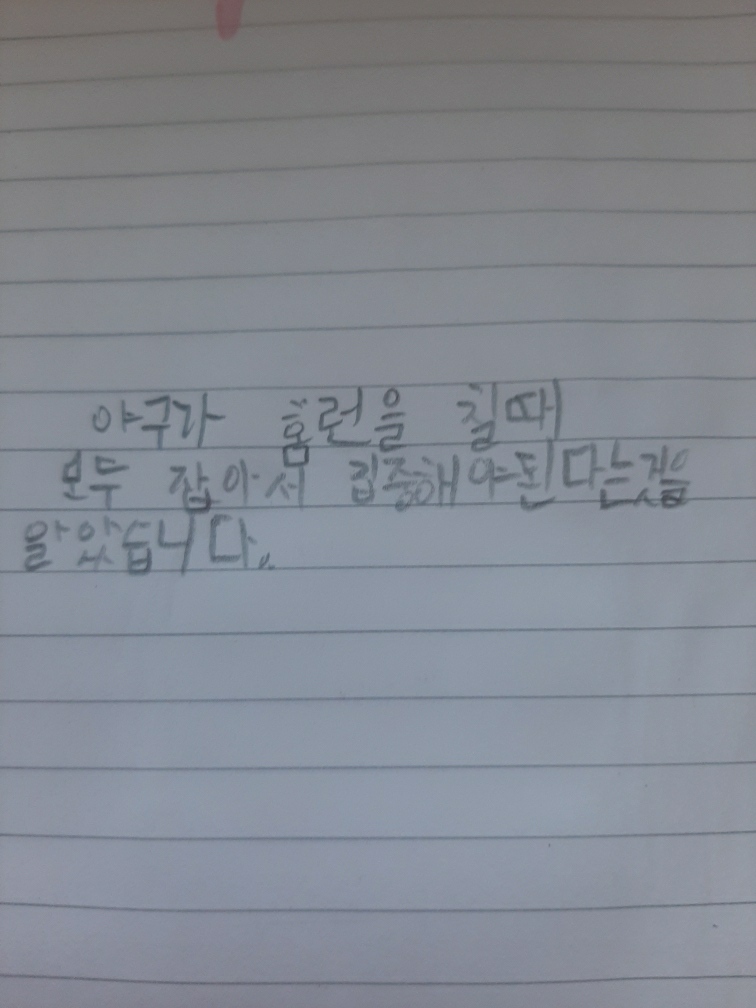 야구가 홈런을 칠때
모두 잡아서 집중해야된다는것을
알았습니다.